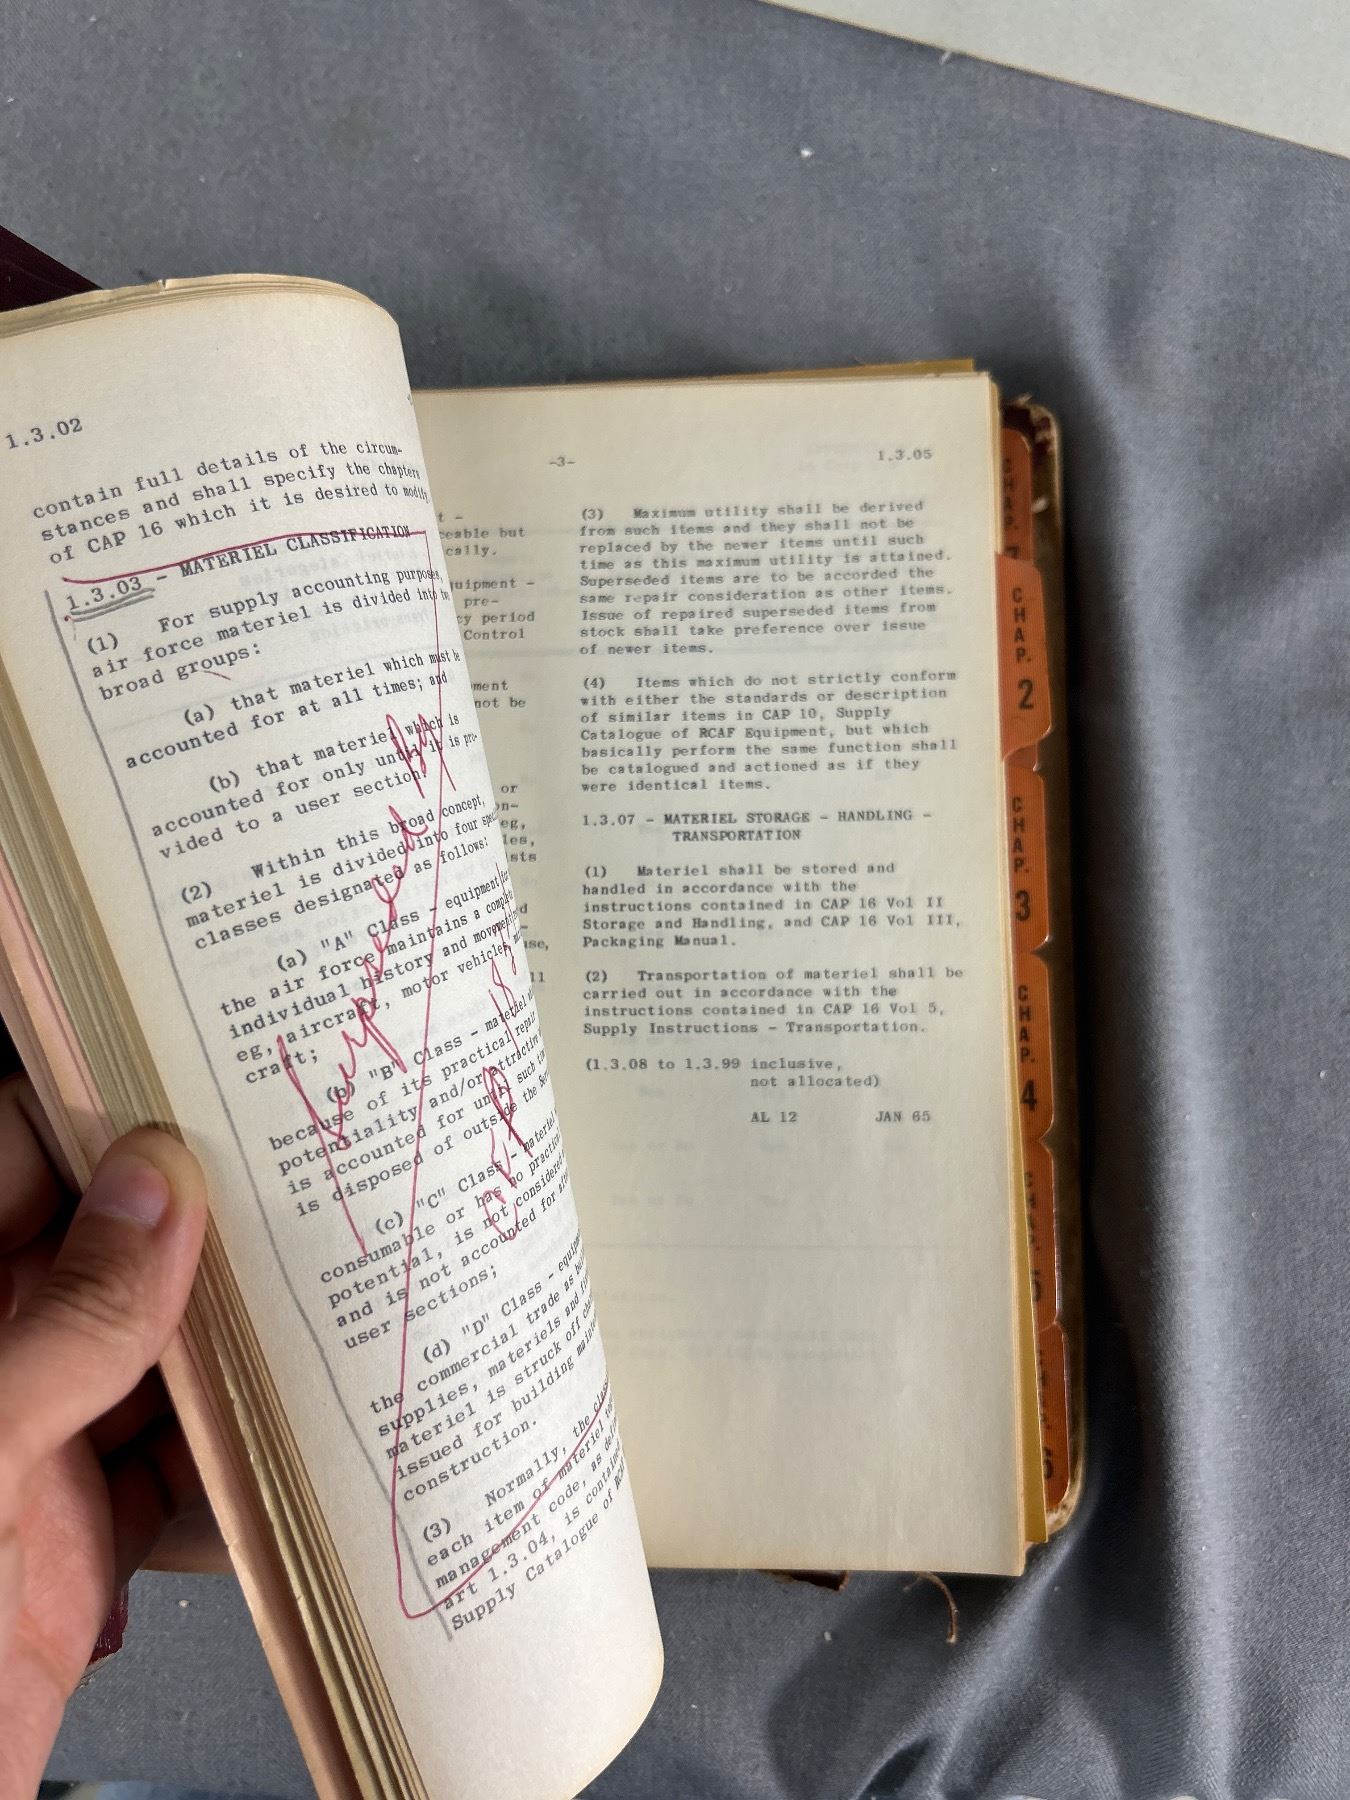 1.3.02
contain full details of the circum-
stances and shall specify the chapters
of CAP 16 which it is desired to modify
1.3.03 - MATERIEL CLASSIFICATION
(1) For supply accounting purposes,
air force materiel is divided into two
broad groups:
(a) that materiel which must be
accounted for at all times; and
(b) that materiel which is
accounted for only until it is pro-
vided to a user section.
(2) Within this broad concept,
materiel is divided into four
classes designated as follows:
(a) "A" Class - equipment
the air force maintains a
individual history and
eg, aircraft, motor vehicles,
craft;
(b) "B" Class - materiel
because of its practical repair
potentiality and/or attractive
is accounted for until such
is disposed of outside the
(c) "C" Class - materiel
consumable or has no
potential, is not considered
and is not accounted for
user sections;
(d) "D" Class -
the commercial trade as
supplies, materiels and
materiel is struck off
issued for building
construction.
(3) Normally, the
each item of materiel
management code, as
art 1.3.04, is contained
Supply Catalogue of
Superseded by
-3-
1.3.05
t -
eable but
cally.
uipment -
pre-
cy period
Control
ment
not be
or
on-
eg,
les,
sts
d
-
use,
11
(3) Maximum utility shall be derived
from such items and they shall not be
replaced by the newer items until such
time as this maximum utility is attained.
Superseded items are to be accorded the
same repair consideration as other items.
Issue of repaired superseded items from
stock shall take preference over issue
of newer items.
(4) Items which do not strictly conform
with either the standards or description
of similar items in CAP 10, Supply
Catalogue of RCAF Equipment, but which
basically perform the same function shall
be catalogued and actioned as if they
were identical items.
1.3.07 - MATERIEL STORAGE - HANDLING -
TRANSPORTATION
(1) Materiel shall be stored and
handled in accordance with the
instructions contained in CAP 16 Vol II
Storage and Handling, and CAP 16 Vol III,
Packaging Manual.
(2) Transportation of materiel shall be
carried out in accordance with the
instructions contained in CAP 16 Vol 5,
Supply Instructions - Transportation.
(1.3.08 to 1.3.99 inclusive,
not allocated)
AL 12 JAN 65
CHAP.
CHAP. 2
CHAP. 3
CHAP. 4
5
6